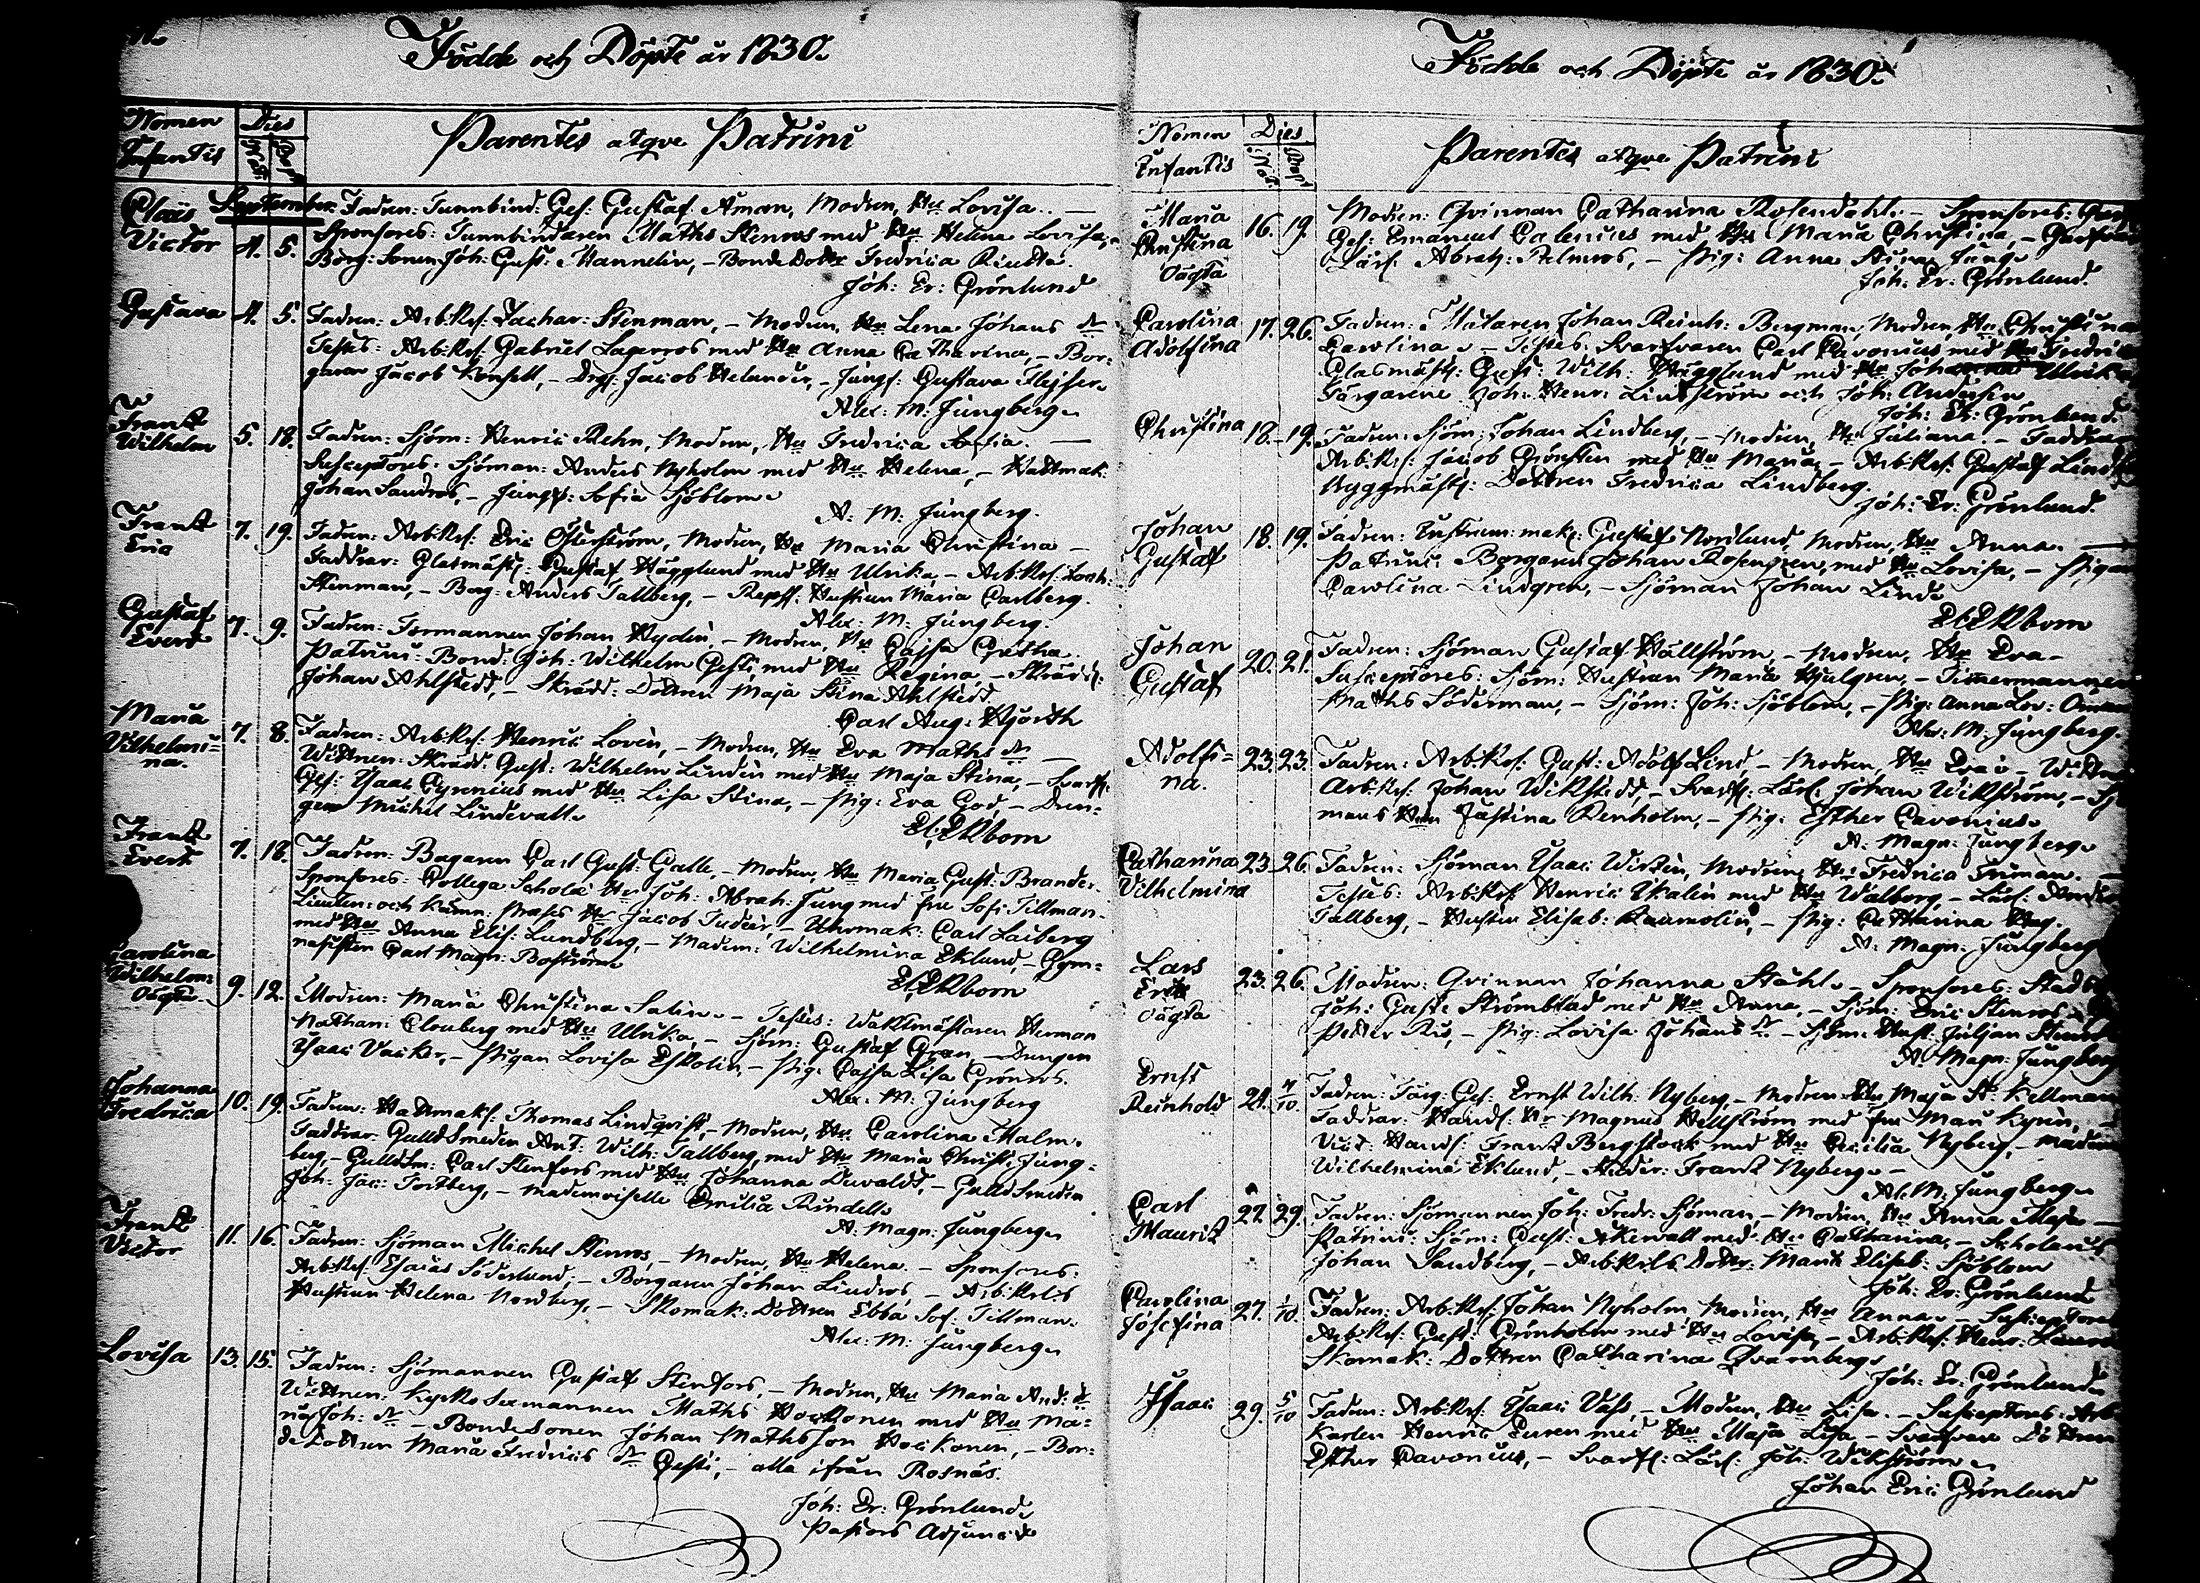 Födde och Döpte år 1830.
Nomen Infantis
Dies
Nat:
Bapt:
Parentes atqve Patrini
September.
Claës Victor 4. 5. Fadren: Tunnbind: Ges: Gustaf Åman, Modren, Hu Lovisa. —
Sponsores: Tunnbindaren Maths Stenroos med Hu Helena Lovisa, —
Borg: Sonen Joh: Gust: Mannelin, — Bonde Dottr Fredrica
Joh: Er: Grönlund
Gustava 4. 5. Fadren: Arb:Krl: Zachar: Stenman, — Modren, Hu Lena Johans dr
Testes: Arb:Krl: Gabriel Lagerroos med Hu Anna Catharina, — Bor-
garen Jacob Konsell, — Drg: Jacob Helander, — Jungf: Gustava
Alex: M: Jungberg.
Frantz Wilhelm 5. 18. Fadren: Sjöm: Henric Rehn, Modren, Hu Fredrica Sofia. —
Susceptores: Sjöman: Anders Nyholm med Hu Helena, — Hattmak:
Johan Sandroos, — Jungf: Sofia Sjöblom.
A: M: Jungberg.
Frantz Eric 7. 19. Fadren: Arb:Krl: Eric Österström, Modren, Hu Maria Christina —
Faddrar: Glasmäst: Gustaf Hägglund med Hu Ulrika, — Arb:Krl: Zach:
Stenman, — Borg: Anders Tallberg, — Repsl: Hustrun Maria Carlberg.
Alex: M: Jungberg.
Gustaf Evert 7. 9. Fadren: Formannen Johan Rydén, — Modren, Hu Cajsa Greta.
Patrini: Bond: Joh: Wilhelm med Hu Regina, — Skrädd:
Johan Ahlstedt, — Skrädd: Dottren Maja Stina Ahlstedt
Carl Aug: Hjorth
Maria Vilhelmi-
na. 7. 8. Fadren: Arb:Krl: Henric Lovén, — Modren, Hu Eva Maths dr —
Wittnen: Skrädd: Gust: Wilhelm Lindén med Hu Maja Stina, — Svarff:
Ges: Isaac Cyrenius med Hu Lisa Stina, — Pig: Eva God, — Dren-
gen Michel Lindevall.
El: Ekbom
Frantz Evert 7. 18. Fadren: Bagaren Carl Gust: Grelle, — Modren, Hu Maria Gust: Brander.
Sponsores: Collega Scholæ Hr Joh: Abrah: Jung med Fru Sofi Tillman,
Lieuten: och Kämn: Præses Hr Jacob Tudeer, — Uhrmak: Carl Laiberg
med Hu Anna Elis: Lundberg, — Madem: Wilhelmina Eklund, — Gym-
nasisten Carl Magn: Boström.
El: Ekbom
Carolina Wilhelm: oägta 9. 12. Modren: Maria Christina Salin. — Testes: Waktmästaren Herman
Nathan: Clouberg med Hu Ulrika, — Sjöm: Gustaf Gran, — Drengen
Isaac Vacker, — Pigan Lovisa Eskolin, — Pig: Cajsa Lisa Grönroos.
Alex: M: Jungberg
Johanna Fredrica 10. 19. Fadren: Hattmak: Thomas Lindqvist, — Modren, Hu Carolina Malm-
berg. Faddrar: GulldSmeden Ant: Wilh: Tallberg, med Hu Maria Christ: Jung-
berg, — GulldSm: Carl Stenfors med Hu Johanna Dewaldt, — GulldSmeden
Joh: Jac: Fortberg, — Mademoiselle Emilia Rindell.
A: Magn: Jungberg.
Frantz Victor 11. 16. Fadren: Sjöman Michel Stenroos, — Modren, Hu Helena. — Sponsores:
Arb:Krl: Esaias Söderlund, — Borgaren Johan Lindroos, — Arb:Krls
Hustrun Helena Nordberg, — Skomak: Dottren Ebba Sof: Tillman.
Alex: M: Jungberg.
Lovisa 13. 15. Fadren: Sjömannen Gustaf Stenfors, — Modren, Hu Maria And: dr
Wittnen: Kyrko Sexmannen Maths Hockonen med Hu Ma-
ria Joh: dr — BondeSonen Johan Mathsson Hockonen, — Bon-
deDottren Maria Fredrics dr — alla ifrån Rosnäs.
Joh: Er: Grönlund
Pastors Adjunct
Födde och Döpte år 1830.
Nomen Infantis
Dies
Nat:
Bapt:
Parentes atqve Patrini
Maria Christina Oägta 16. 19. Modren: Qvinnan Catharina Rosendahl. — Sponsores:
Ges: Emanuel Calenius med Hu Maria Christina, —
Lärl: Abrah: Palmroos, — Pig: Anna Stina Jung.
Joh: Er: Grönlund.
Carolina Adolfina 17. 26. Fadren: Mätaren Johan Reinh: Bergman, Modren, Hu Christina
Carolina. — Testes: Svarfvaren Carl Cavonius med Hu Fredrica
Glasmäst: Gust: Wilh: Hägglund med Hu Johanna Ulrika,
Färgarene Joh: Henr: Lindström och Joh: Andersin
Joh: Er: Grönlund.
Christina 18. 19. Fadren: Sjöm: Johan Lindberg, — Modren, Hu Juliana. — Faddrar
Arb:Krl: Jacob Grönsten med Hu Maria, — Arb:Krl: Gustaf
Byggmäst: Dottren Fredrica Lindberg.
Joh: Er: Grönlund.
Johan Gustaf 18. 19. Fadren: Instrum: mak: Gustaf Nordlund, Modren, Hu Anna. —
Patrini: Borgaren Johan Rosengren, med Hu Lovisa, — Pigan
Carolina Lindgren, — Sjöman Johan Lind.
El: Ekbom
Johan Gustaf 20. 21. Fadren: Sjöman Gustaf Hällström, — Modren, Hu Eva —
Susceptores: Sjöm: Hustrun Maria Hjulgren, — Timmermannen
Maths Söderman, — Sjöm: Joh: Sjöblom, — Pig: Anna Lov:
Alex: M: Jungberg.
Adolfi-
na. 23. 23. Fadren: Arb:Krl: Gust: Adolf Lind, — Modren, Hu Eva. —
Arb:Krl: Johan Wikstedt, — Svarff: Lärl: Johan Wikström, —
mans Hu Justina Renholm, — Pig: Esther Cavonius.
A: Magn: Jungberg.
Catharina Vilhelmina 23. 26. Fadren: Sjöman Isaac Wirtén, Modren, Hu Fredrica Friman. —
Testes: Arb:Krl: Henric Ekalin med Hu Walborg, — Lärl:
Tallberg, — Hustru Elisab: — Pig: Catharina
A: Magn: Jungberg
Lars Eric oägta 23. 26. Modren: Qvinnan Johanna Ståhl. — Sponsores:
Joh: Gust: Strömblad med Hu Anna, — Sjöm: Eric Stenroos,
Petter — Pig: Lovisa Johans dr — Sjöm: Hust: Juljan
A: Magn: Jungberg
Ernst Reinhold 24. 4/10. Fadren: Färg: Ges: Ernst Wilh: Nyberg, — Modren Hu Maja St: Kellman,
Faddrar: Handl: Hr Magnus Hellström med Fru Mari Kyrén, —
Vict: Handl: Frantz Bergstock med Hu Cecilia Nyberg, — Madam
Wilhelmina Eklund, — Frantz Nyberg. —
Al: M: Jungberg.
Carl Mauritz 27. 29. Fadren: Sjömannen Joh: Fredr: Sjöman, — Modren, Hu Anna Maja —
Patrini: Sjöm: Gust: Åkervall med Hu Catharina, —
Johan Sandberg, — Arb:Krls Dottr: Maria Elisab: Sjöblom
Joh: Er: Grönlund
Carolina Josefina 27. 1/10. Fadren: Arb:Krl: Johan Nyholm, Modren, Hu Anna. — Susceptores
Arb:Krl: Gust: Grönholm med Hu Lovisa, — Arb:Krl: Henr:
Skomak: Dottren Catharina Qvarnberg.
Joh: Er: Grönlund.
Isaac 29. 5/10 Fadren: Arb:Krl: Isaac Vass, — Modren, Hu Lisa. — Susceptores: Arb
Karlen Henric Duren med Hu Maja Lisa — Svarfvare Dottren
Esther Cavonius, — Svarff: Lärl: Joh: Wikström.
Johan Eric Grönlund